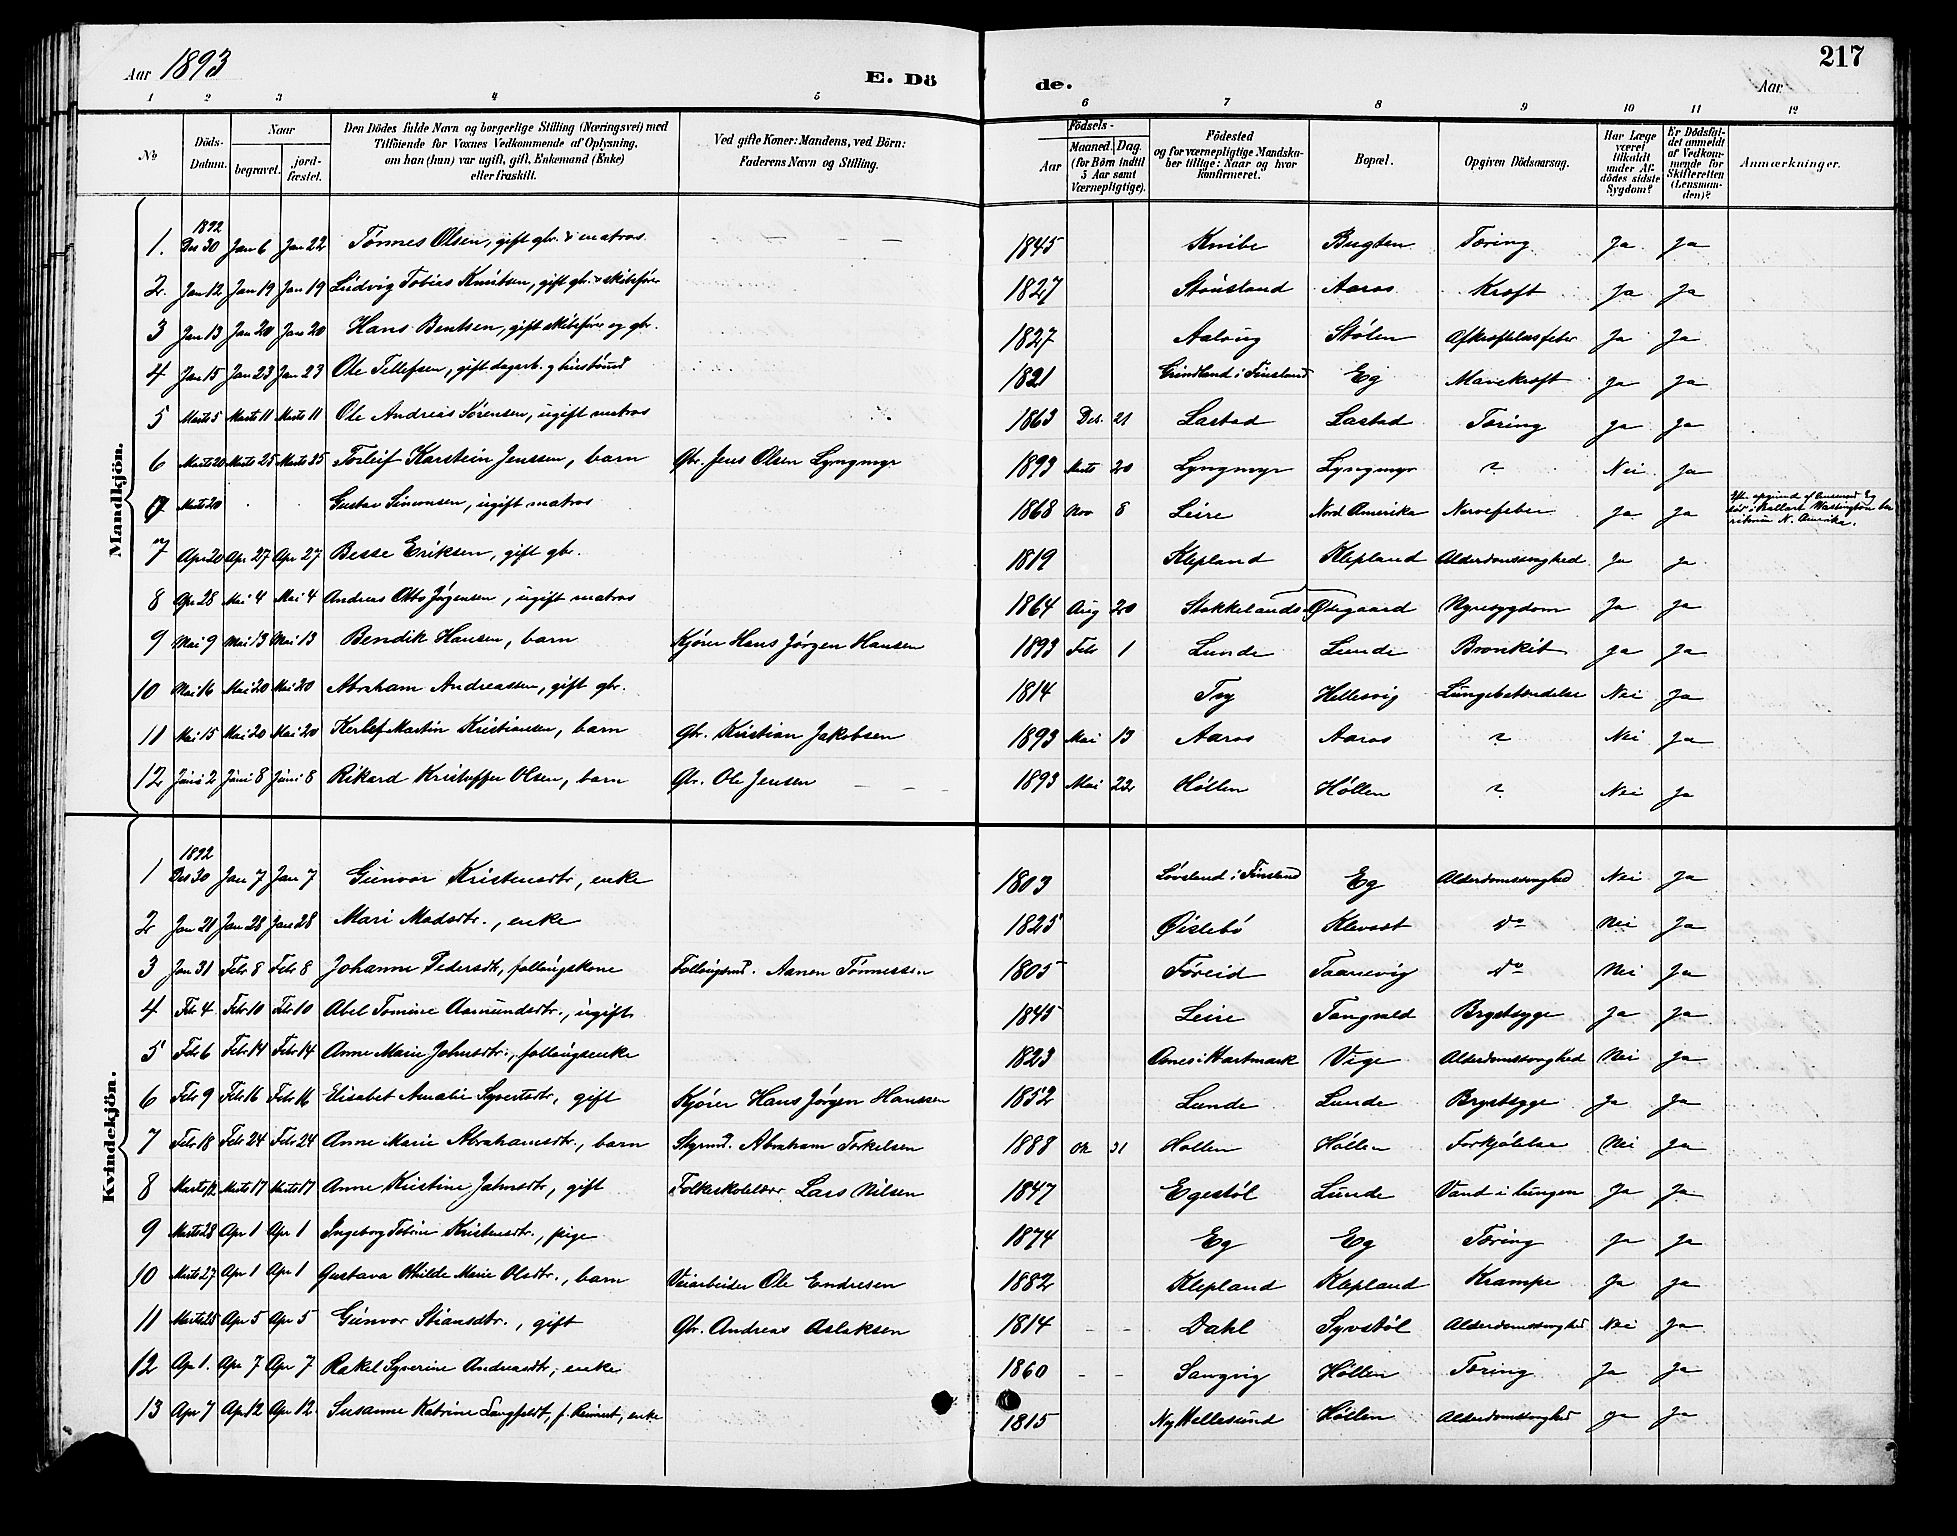 Aar 1893 E. Dö de. Aar 217
1 2 3 4 5 6 7 8 9 10 11 12
No Döds-Datum. Naar begravet. jordfæstet. Den Dödes fulde Navn og borgerlige Stilling (Næringsvei) med Tilföiende for Voxnes Vedkommende af Oplysning, om han (hun) var ugift, gift, Enkemand (Enke) eller fraskilt. Ved gifte Koner: Mandens, ved Börn: Faderens Navn og Stilling. Födsels- Aar Maaned. Dag. (for Börn indtil 5 Aar samt Værnepligtige). Födested og for værnepligtige Mandskaber tillige: Naar og hvor konfirmeret. Bopæl. Opgiven Dödsaarsag. Har Læge været tilkaldt under Afdödes sidste Sygdom? Er Dödsfaldet anmeldt af Vedkommende for Skifteretten (Lensmanden)? Anmærkninger.
Mandkjön.
1892
1. Des 30 Jan 6 Jan 22 Tønnes Olsen, gift gbr. & matros 1845 Knibe Bugten Tæring Ja Ja
2. Jan 12 Jan 19 Jan 19 Ludvig Tobias Knutsen, gift gbr. & skibsfører 1827 Stousland Aaros Kræft Ja Ja
3 Jan 13 Jan 20 Jan 20 Hans Bentsen, gift skibsfører og gbr. 1827 Aalvig Stølen Afkræftelsesfeber Ja Ja
4 Jan 15 Jan 23 Jan 23 Ole Tellefsen, gift dagarb. g husbond 1821 Grindland i Finsland Eg Mavekræft Ja Ja
5 Marts 5 Marts 11 Marts 11 Ole Andreas Sørensen, ugift matros 1863 Des. 21 Lastad Lastad Tæring Ja Ja
6 Marts 20 Marts 25 Marts 25 Torleif Karstein Jenssen, barn Gbr. Jens Olsen Lyngmyr 1893 Marts 20 Lyngmyr Lyngmyr ? Nei Ja
Marts 20 Gustav Simonsen, ugift matros 1868 Nov 8 Leire Nord Amerika Nervefeber Ja Ja Efter opgivend af Eg død i Washington N. Amerika.
7 Apr 20 Apr 27 Apr 27 Besse Eriksen, gift gbr. 1819 Klepland Klepland Alderdomssvaghed Ja Ja
8 Apr 28 Mai 4 Mai 4 Andreas Otto Jørgensen, ugift matros 1864 Aug 20 Stokkelands Østigaard Nyresygdom Ja Ja
9 Mai 9 Mai 13 Mai 13 Bendik Hansen, barn Kjører Hans Jørgen Hansen 1893 Febr 1 Lunde Lunde Bronkit Ja Ja
10 Mai 16 Mai 20 Mai 20 Abraham Andreassen, gift gbr. 1814 Try Hellesvig Lungebetændelse Nei Ja
11 Mai 15 Mai 20 Mai 20 Kerlef Martin Kristiansen, barn Gbr. Kristian Jakobsen 1893 Mai 13 Aaros Aaros ? Nei Ja
12 Juni 2 Juni 8 Juni 8 Rikard Kristoffer Olsen, barn Gbr. Ole Jensen 1893 Mai 22 Høllen Høllen ? Nei Ja
Kvindekjön.
1892
1 Des 30 Jan 7 Jan 7 Gunvor Kristensdtr, enke 1803 Løvsland i Finsland Eg Alderdomssvaghed Nei Ja
2 Jan 21 Jan 28 Jan 28 Mari Madsdtr., enke 1825 Øislebø Klevset do Nei Ja
3 Jan 31 Febr 8 Febr 8 Johanne Pedersdtr, follaugskone Follaugsmd. Aanen Tønnessen 1805 Føreid Taanevig do Nei Ja
4 Febr 4 Febr 10 Febr 10 Abel Tomine Aamundsdtr., ugift 1845 Leire Tangvald Brystsyge Ja Ja
5 Febr 6 Febr 14 Febr 14 Anne Marie Johnsdtr., follaugsenke 1823 Aunes i Hartmark Vige Alderdomssvaghed Nei Ja
6 Febr 9 Febr 16 Febr 16 Elisabet Amalie Syvertsdtr, gift Kjører Hans Jørgen Hanssen 1852 Lunde Lunde Brystsyge Ja Ja
7 Febr 18 Febr 24 Febr 24 Anne Marie Abrahamsdtr., barn Styrmd. Abraham Torkelsen 1888 Ok 31 Høllen Høllen Forkjølelse Nei Ja
8 Marts 12 Marts 17 Marts 17 Anne Kristine Jahnsdtr, gift Folkeskolelærer Lars Nilsen 1847 Egestøl Lunde Vand i lungen Ja Ja
9 Marts 28 Apr 1 Apr 1 Ingeborg Tobine Kristensdtr., pige 1874 Eg Eg Tæring Ja Ja
10 Marts 27 Apr 1 Apr 1 Gustava Othilde Marie Olsdtr., barn Veiarbeider Ole Endresen 1882 Klepland Klepland Krampe Ja Ja
11 Marts 25 Apr 5 Apr 5 Gunvor Stiansdtr., gift Gbr. Andreas Aslaksen 1814 Dahl Syvstøl Alderdomssvaghed Nei Ja
12 Apr 1. Apr 7 Apr 7 Rakel Syverine Andreasdtr, enke 1860 Sangvig Høllen Tæring Ja Ja
13 Apr 7 Apr 12 Apr 12 Susanne Katrine Langfeldt, f. Reimert, enke 1815 Ny Hellesund Høllen Alderdomssvaghed Ja Ja